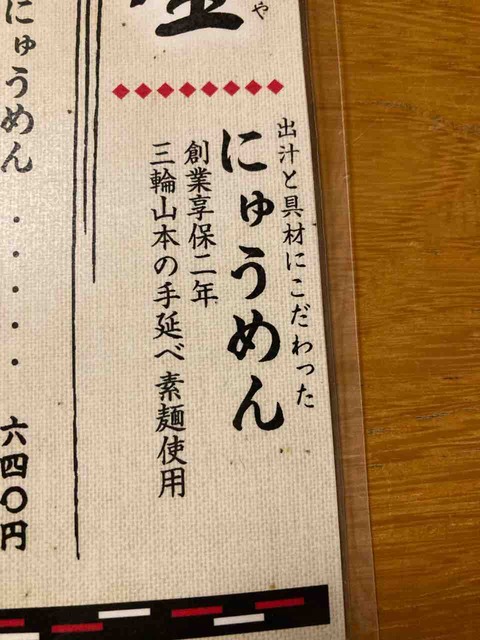 や
出汁と具材にこだわった
にゅうめん
創業享保二年
三輪山本の手延べ素麺使用
にゅうめん・・・・・六四〇円